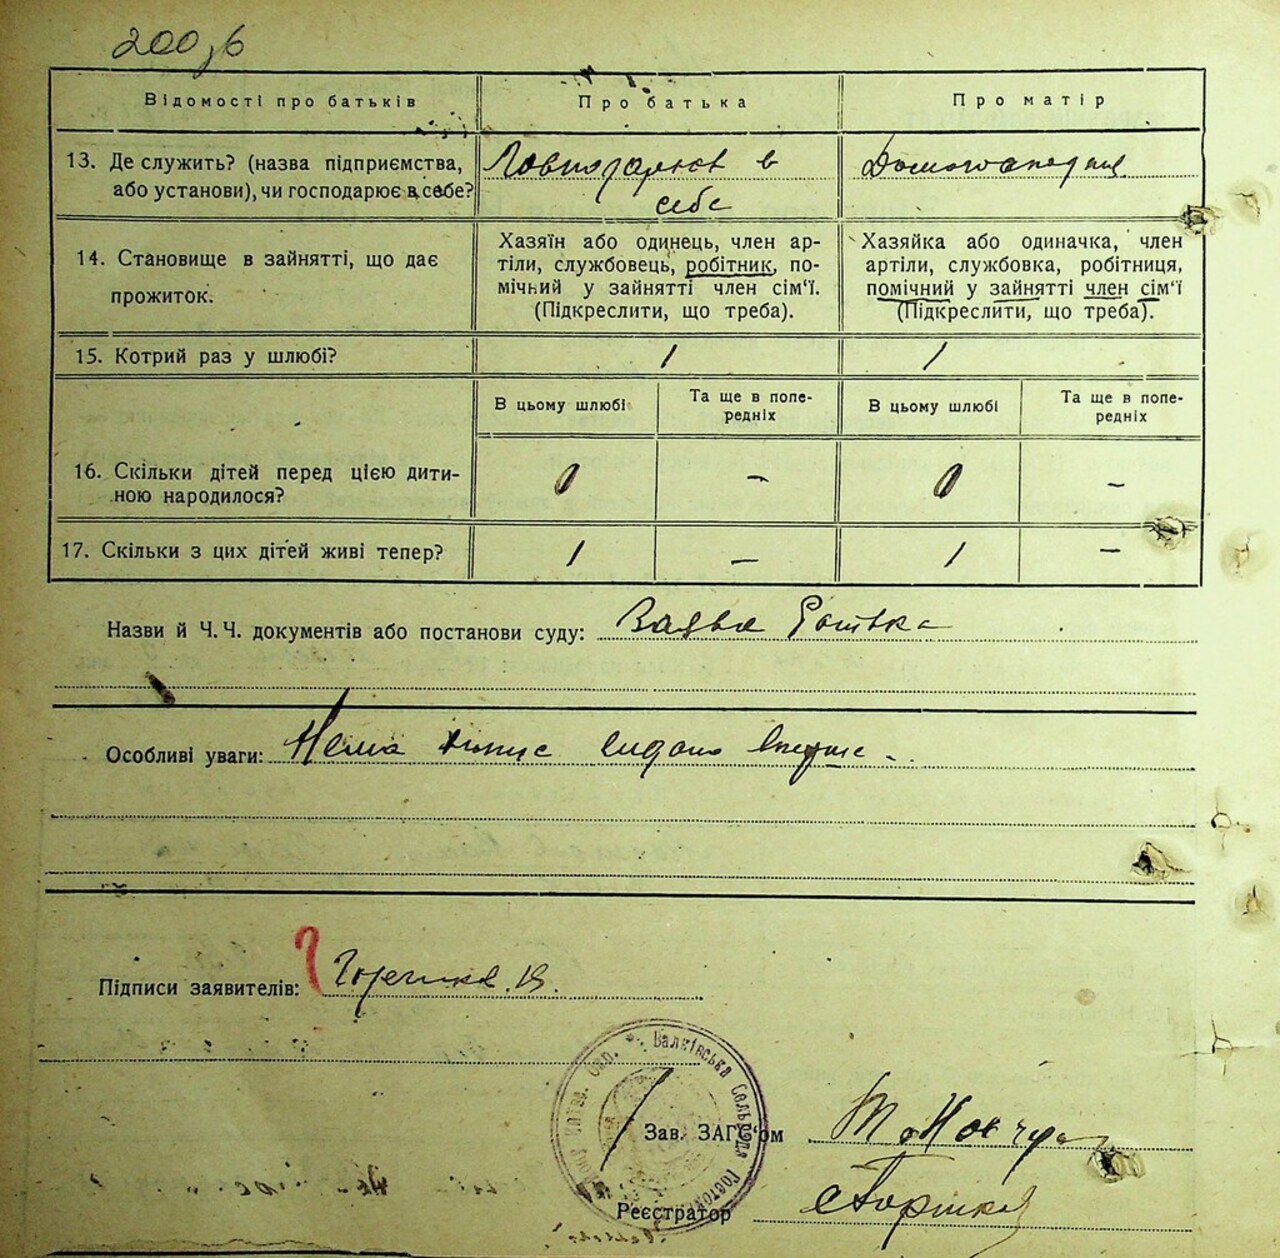 200,б
Відомості про батьків
Про батька
Про матір
13. Де служить? (назва підприємства,
або установи), чи господарює в себе?
в
себе
Домогосподиня
14. Становище в зайнятті, що дає
прожиток.
Хазяїн або одинець, член ар-
тіли, службовець, робітник, по-
мічний у зайнятті член сім'ї.
(Підкреслити, що треба).
Хазяйка або одиначка, член
артіли, службовка, робітниця,
помічний у зайнятті член сім'ї
(Підкреслити, що треба).
15. Котрий раз у шлюбі?
1
1
В цьому шлюбі
Та ще в попе-
редніх
В цьому шлюбі
Та ще в попе-
редніх
16. Скільки дітей перед цією дити-
ною народилося?
0
—
0
—
17. Скільки з цих дітей живі тепер?
1
—
1
—
Назви й Ч.Ч. документів або постанови суду: Заява
Особливі уваги: Нема видано вперше.
Підписи заявителів:
Валківська Сельрада
Зав. ЗАГС'ом
Реєстратор